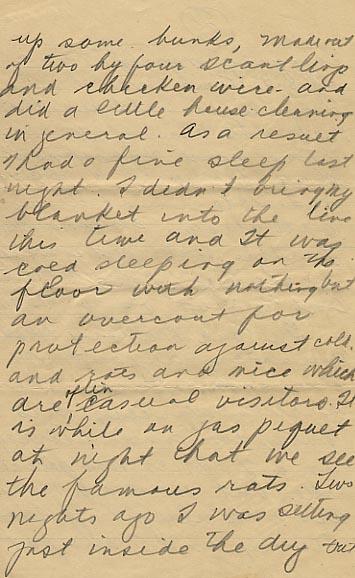 up some bunks, made out
of two by four scantling
and chicken wire and
did a little house cleaning
in general. As a result
I had a fine sleep last
night. I didn't bring my
blanket into the line
this time and It was
cold sleeping on the
floor with nothing but
an overcoat for
protection against cold.
and rats and mice which
are often casual visitors. It
is while on gas piquet
at night that we see
the famous rats. Two
nights ago I was sitting
just inside the dug out